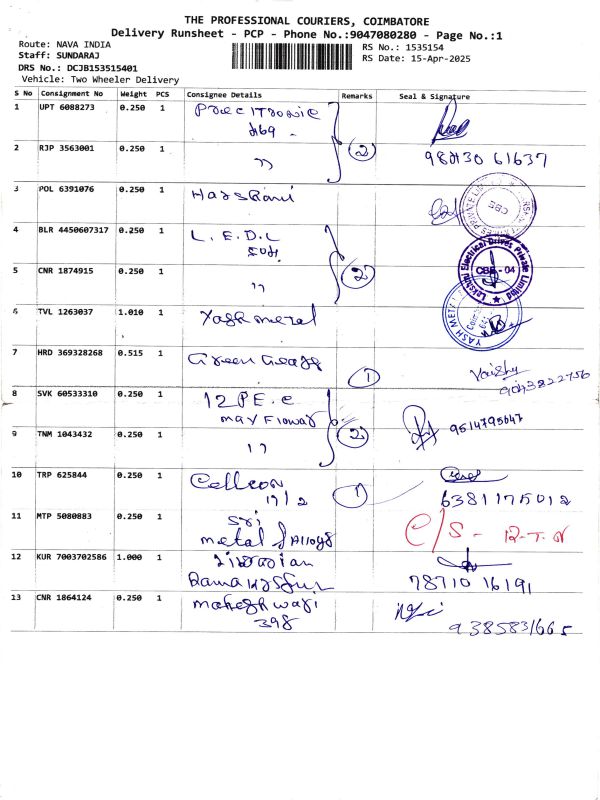 THE PROFESSIONAL COURIERS, COIMBATORE
Delivery Runsheet - PCP - Phone No.:9047080280 - Page No.:1
Route: NAVA INDIA
Staff: SUNDARAJ
DRS No.: DCJB153515401
Vehicle: Two Wheeler Delivery
RS No.: 1535154
RS Date: 15-Apr-2025
S No Consignment No Weight PCS Consignee Details Remarks Seal & Signature
1 UPT 6088273 0.250 1
2 RJP 3563001 0.250 1 " 2 98430 61637
3 POL 6391076 0.250 1
4 BLR 4450607317 0.250 1 L.E.D.L
5 CNR 1874915 0.250 1 " 2
Lakshmi Electrical Drives Private Limited
CBE - 04
6 TVL 1263037 1.010 1 Yash metal
YASH METAL
7 HRD 369328268 0.515 1 Green 1 Vaishu
9043822756
8 SVK 60533310 0.250 1 12 P.E.C
9514795647
9 TNM 1043432 0.250 1 " 2
10 TRP 625844 0.250 1 Cellcon 1
17/2 6381175012
11 MTP 5080883 0.250 1 Sri C/S - R.T.N
metal Alloys
12 KUR 7003702586 1.000 1
78710 16191
13 CNR 1864124 0.250 1 maheshwari
398 9385831665